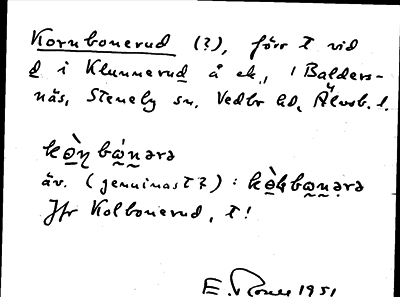 Kornbonerud (?), förr t vid
d i Klunnerud å ek., i Balders-
näs, Steneby sn, Vedbo hd, Älvsb. l.
kò̱ɳ bώ̱nərə
äv. (genuinast?): kò̱ɫbώ̱nərə
Jfr Kolbonerud, t!
1951